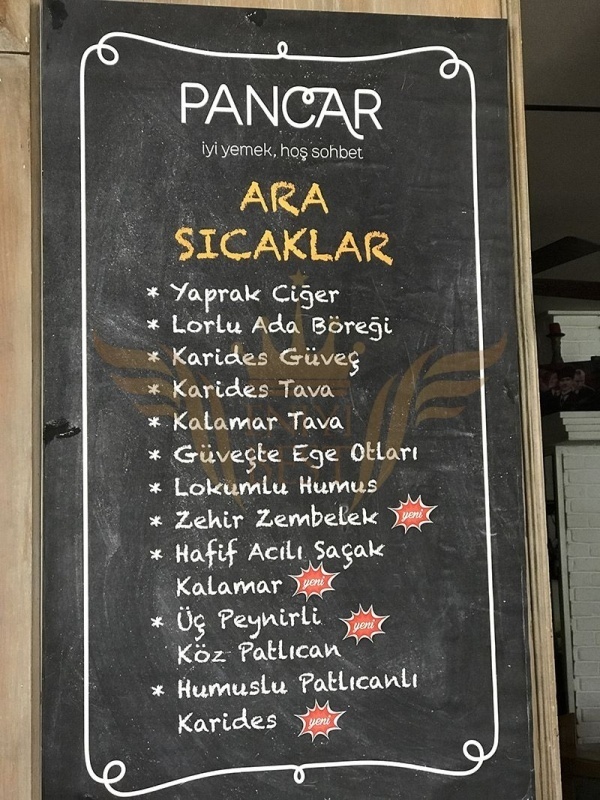 PANCAR
iyi yemek, hoş sohbet
ARA
SICAKLAR
* Yaprak Ciğer
* Lorlu Ada Böreği
* Karides Güveç
* Karides Tava
* Kalamar Tava
* Güveçte Ege Otları
* Lokumlu Humus
* Zehir Zembelek yeni
* Hafif Acılı Saçak
Kalamar yeni
* Üç Peynirli yeni
Köz Patlıcan
* Humuslu Patlıcanlı
Karides yeni